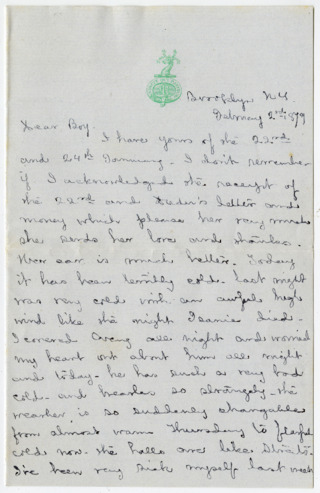 Brooklyn N.Y.
February 2nd 1879
Dear Boy.
I have yours of the 22nd
and 24th January - I don't remember
if I acknowledged the receipt of
the 22nd and letter and
money which please her very much
she sends her love and thanks.
Her ear is much better. Today
it has been terribly cold. last night
was very cold with an awful high
wind like the night Jeanie died.
I covered all night and worried
my heart out about him all night
and today - he has such a very bad
cold - and breathes so strangely. the
weather is so suddenly changeable
from almost warm Thursday to fearful
cold now. the halls are like
I've been very sick myself last week